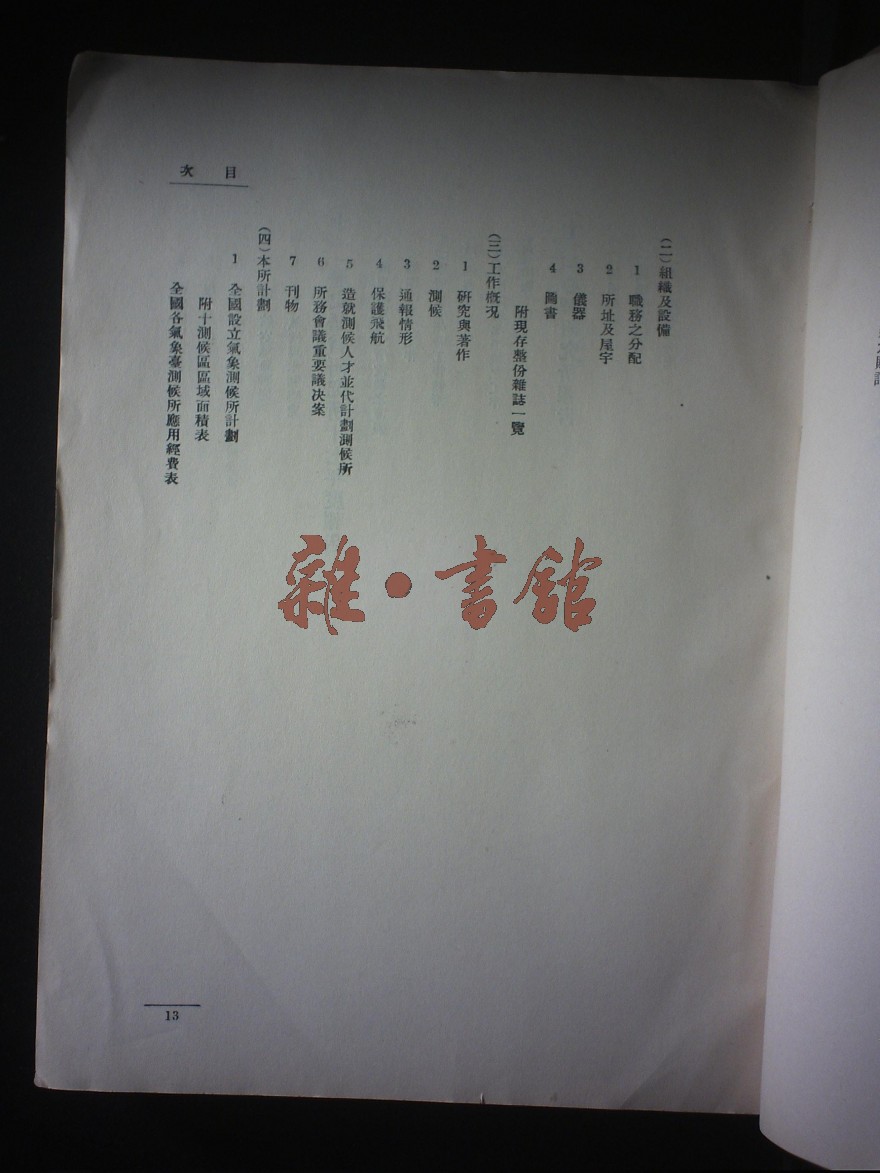 次目
(二)組織及設備
1 職務之分配
2 所址及屋宇
3 儀器
4 圖書
附現存整份雜誌一覽
(三)工作概況
1 研究與著作
2 測候
3 通報情形
4 保護飛航
5 造就測候人才並代計劃測候所
6 所務會議重要議决案
7 刊物
(四)本所計劃
1 全國設立氣象測候所計劃
附十測候區區域面積表
全國各氣象臺測候所應用經費表
13
雜·書館